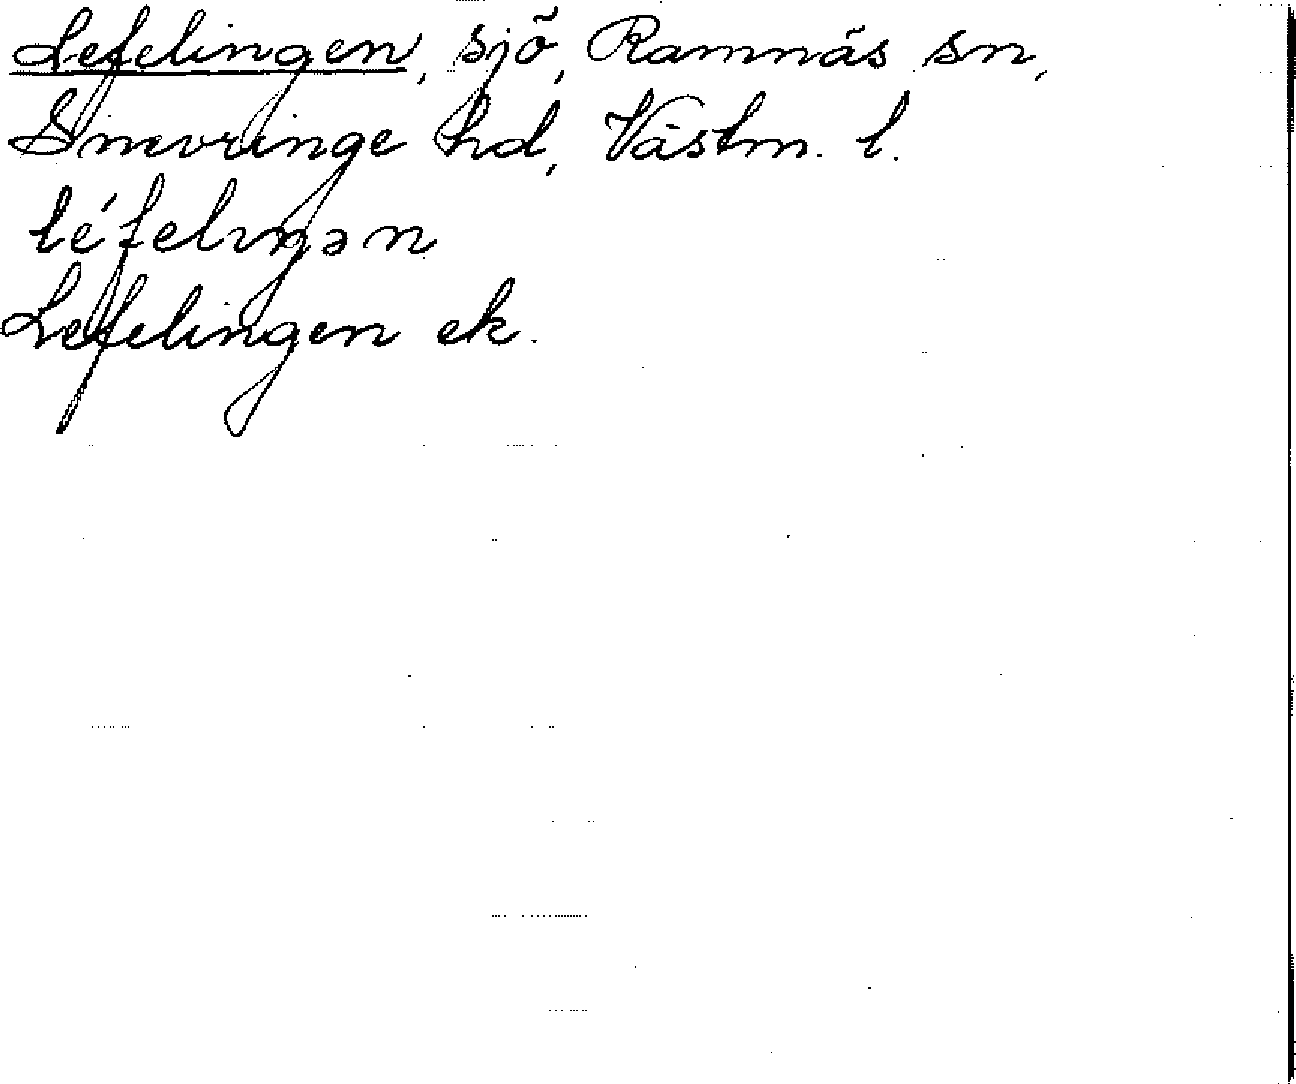 Lefelingen, sjö, Ramnäs sn,
Snevringe hd, Västm. l.
léfelıŋən
Lefelingen ek.